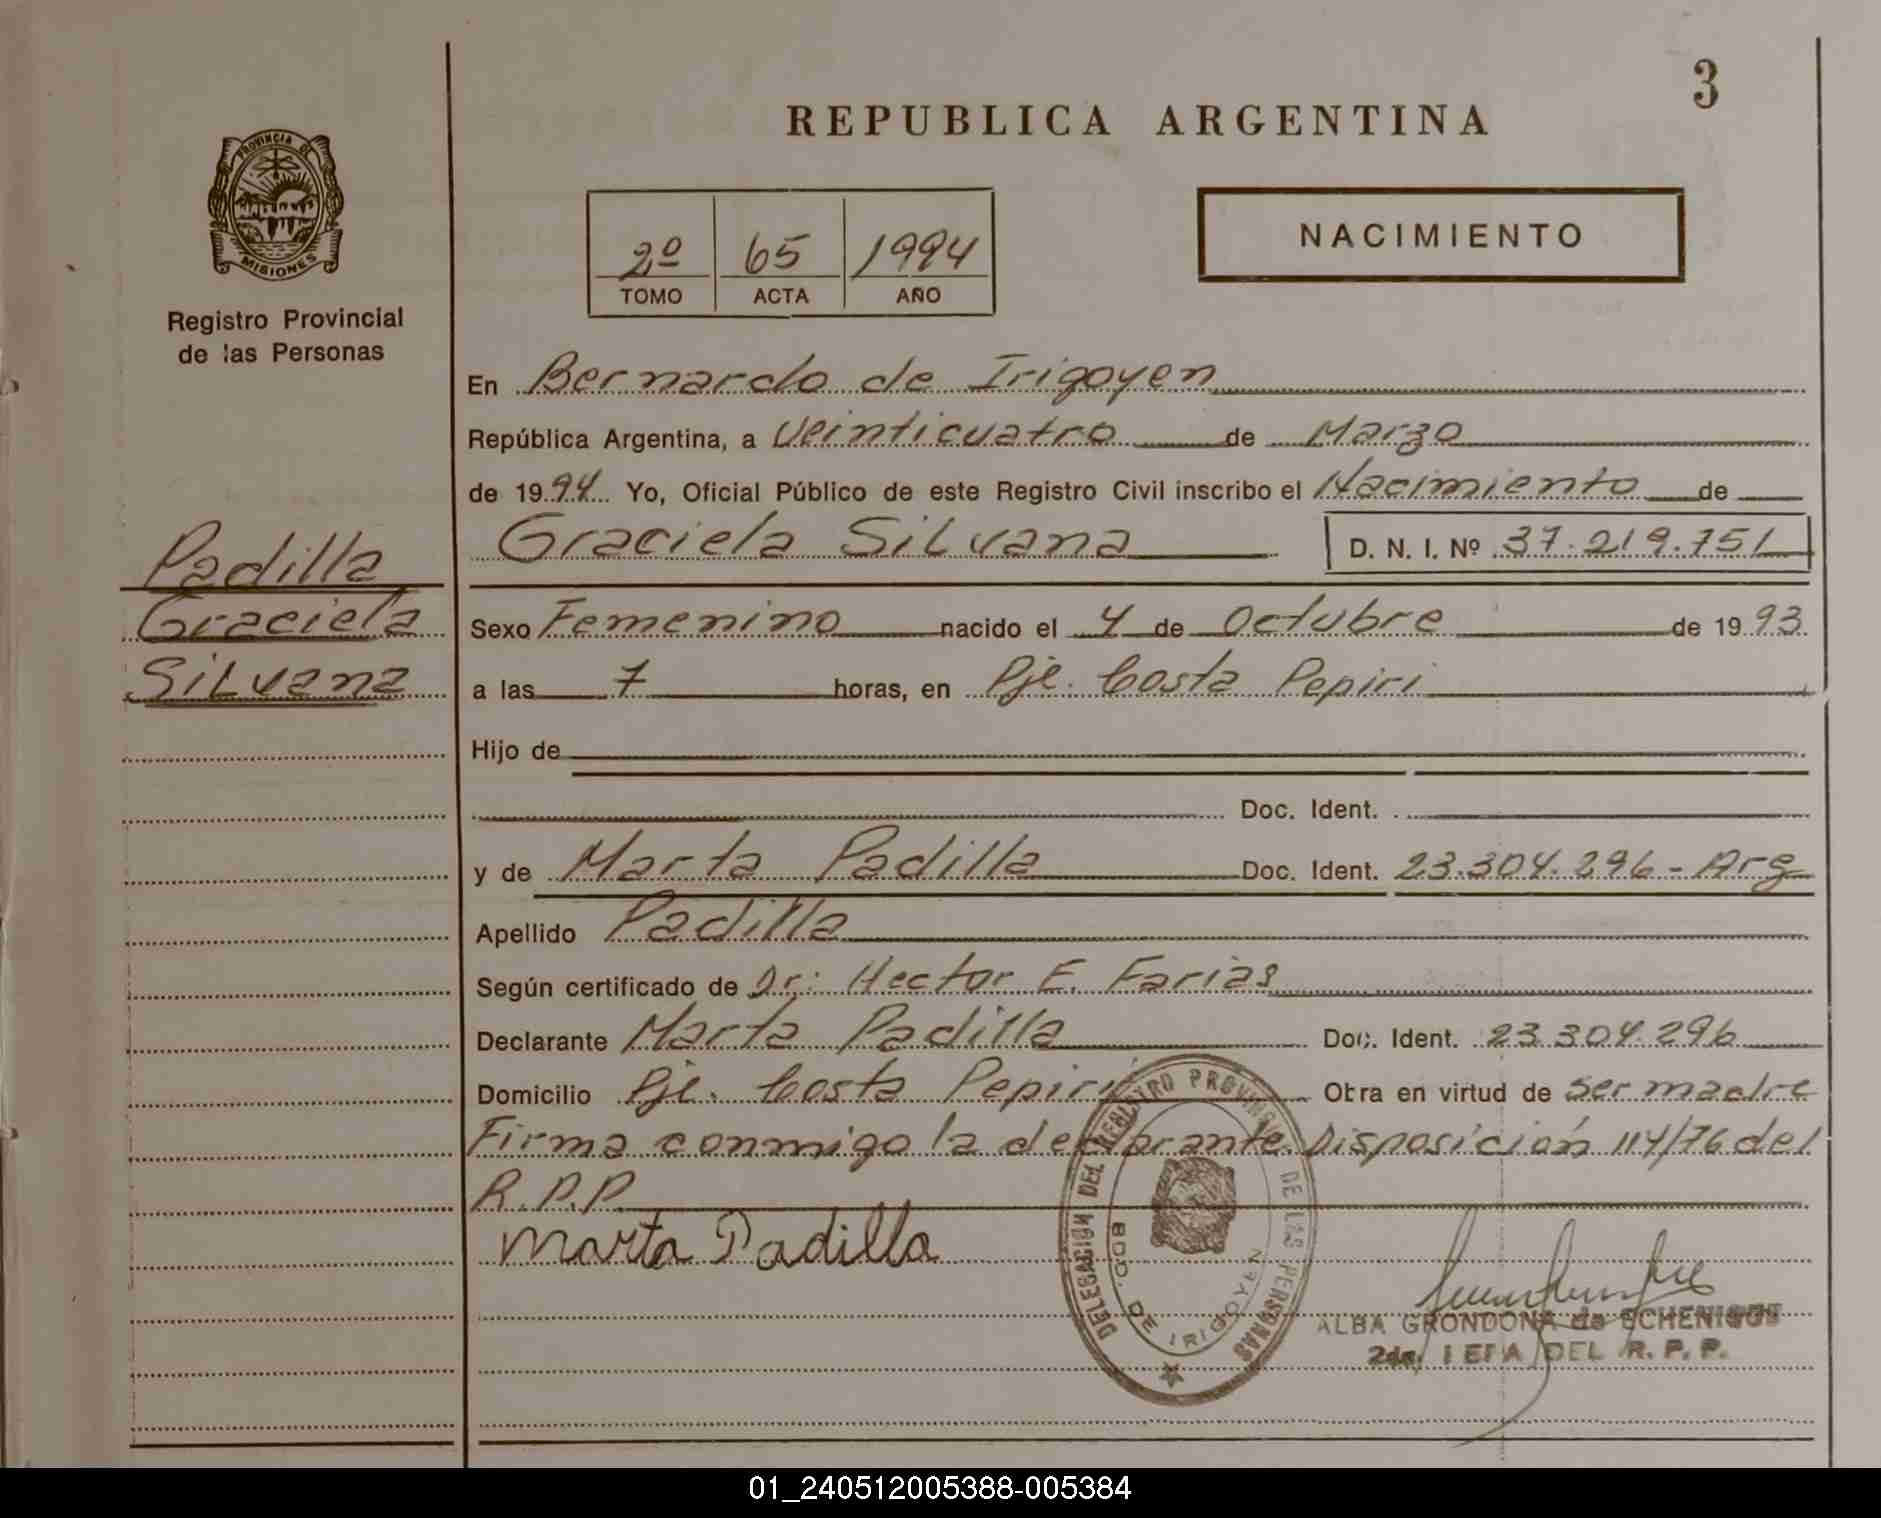 3
REPUBLICA ARGENTINA
PROVINCIA DE
MISIONES
Registro Provincial
de las Personas
2º 65 1994
TOMO ACTA AÑO
NACIMIENTO
En Bernardo de Irigoyen
República Argentina, a Veinticuatro de Marzo
de 1994 Yo, Oficial Público de este Registro Civil inscribo el Nacimiento de
Graciela Silvana D. N. I. Nº 37.219.751
Padilla
Graciela
Silvana
Sexo Femenino nacido el 4 de Octubre de 1993
a las 7 horas, en Pje. Costa Pepiri
Hijo de
Doc. Ident.
y de Marta Padilla Doc. Ident. 23.304.296 - Arg
Apellido Padilla
Según certificado de Dr: Hector E. Farias
Declarante Marta Padilla Doc. Ident. 23.304.296
Domicilio Pje. Costa Pepiri Obra en virtud de ser madre
Firma conmigo la declarante. Disposición 114/76 del
R.P.P.
Marta Padilla
DELEGACION DEL REGISTRO PROVINCIAL DE LAS PERSONAS
BDO. DE IRIGOYEN
ALBA GRONDONA de ECHENIQUE
2da. JEFA DEL R. P. P.
01_240512005388-005384